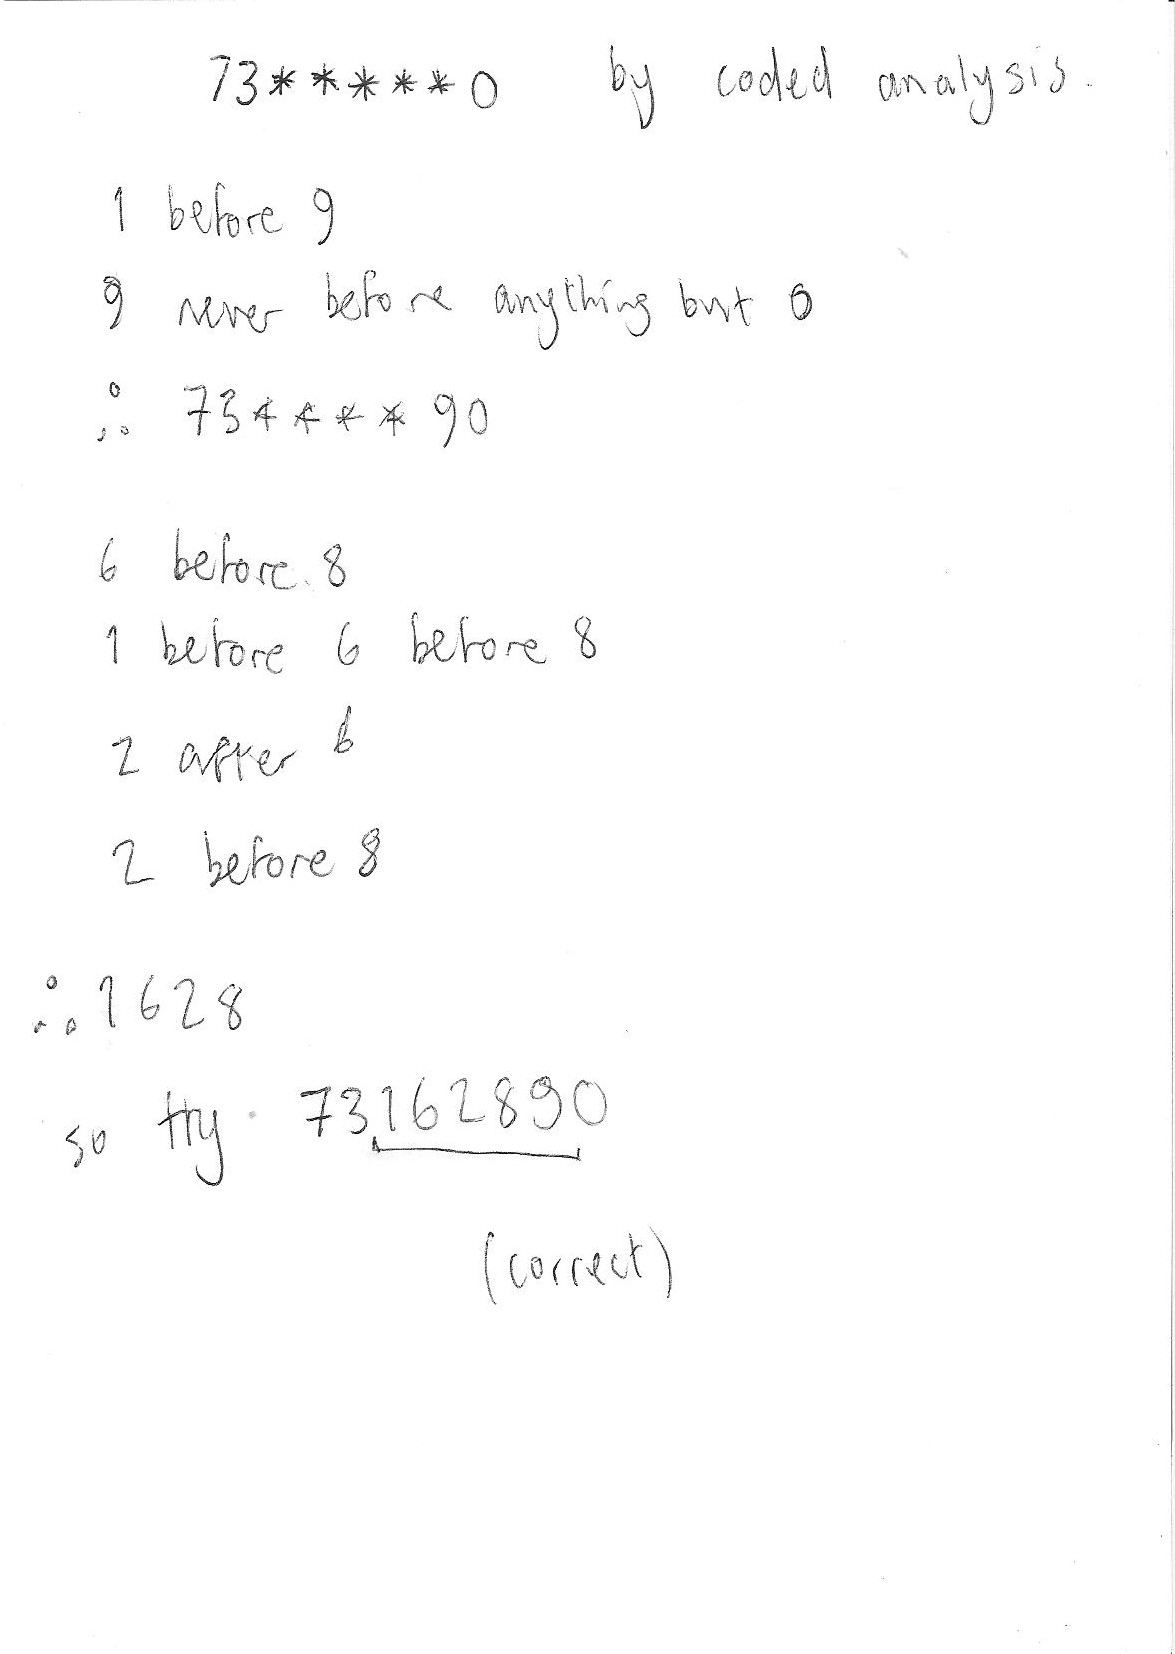 73*****0 by coded analysis.
1 before 9
9 never before anything but 0
∴ 73****90
6 before 8
1 before 6 before 8
2 after 6
2 before 8
∴ 1628
so try 73162890
(correct)